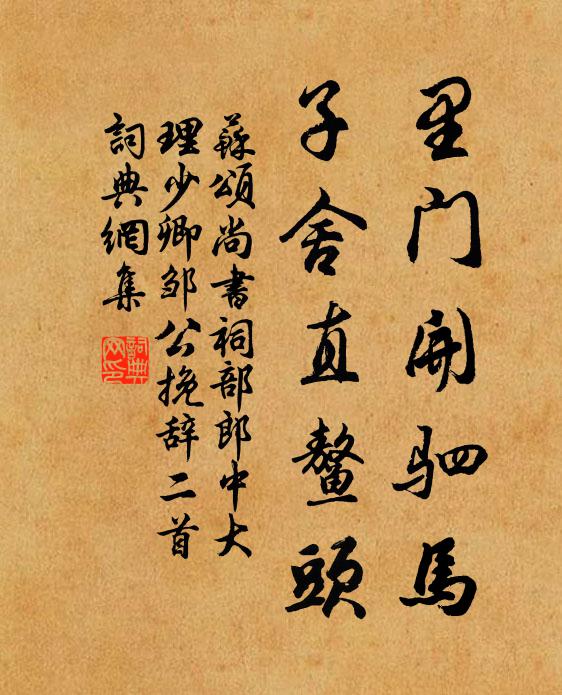 里门開驷馬
子舍直鳌頭
蘇頌尚書祠部郎中大
理少卿邹公挽辞二首
詞典網集
詞典
网印